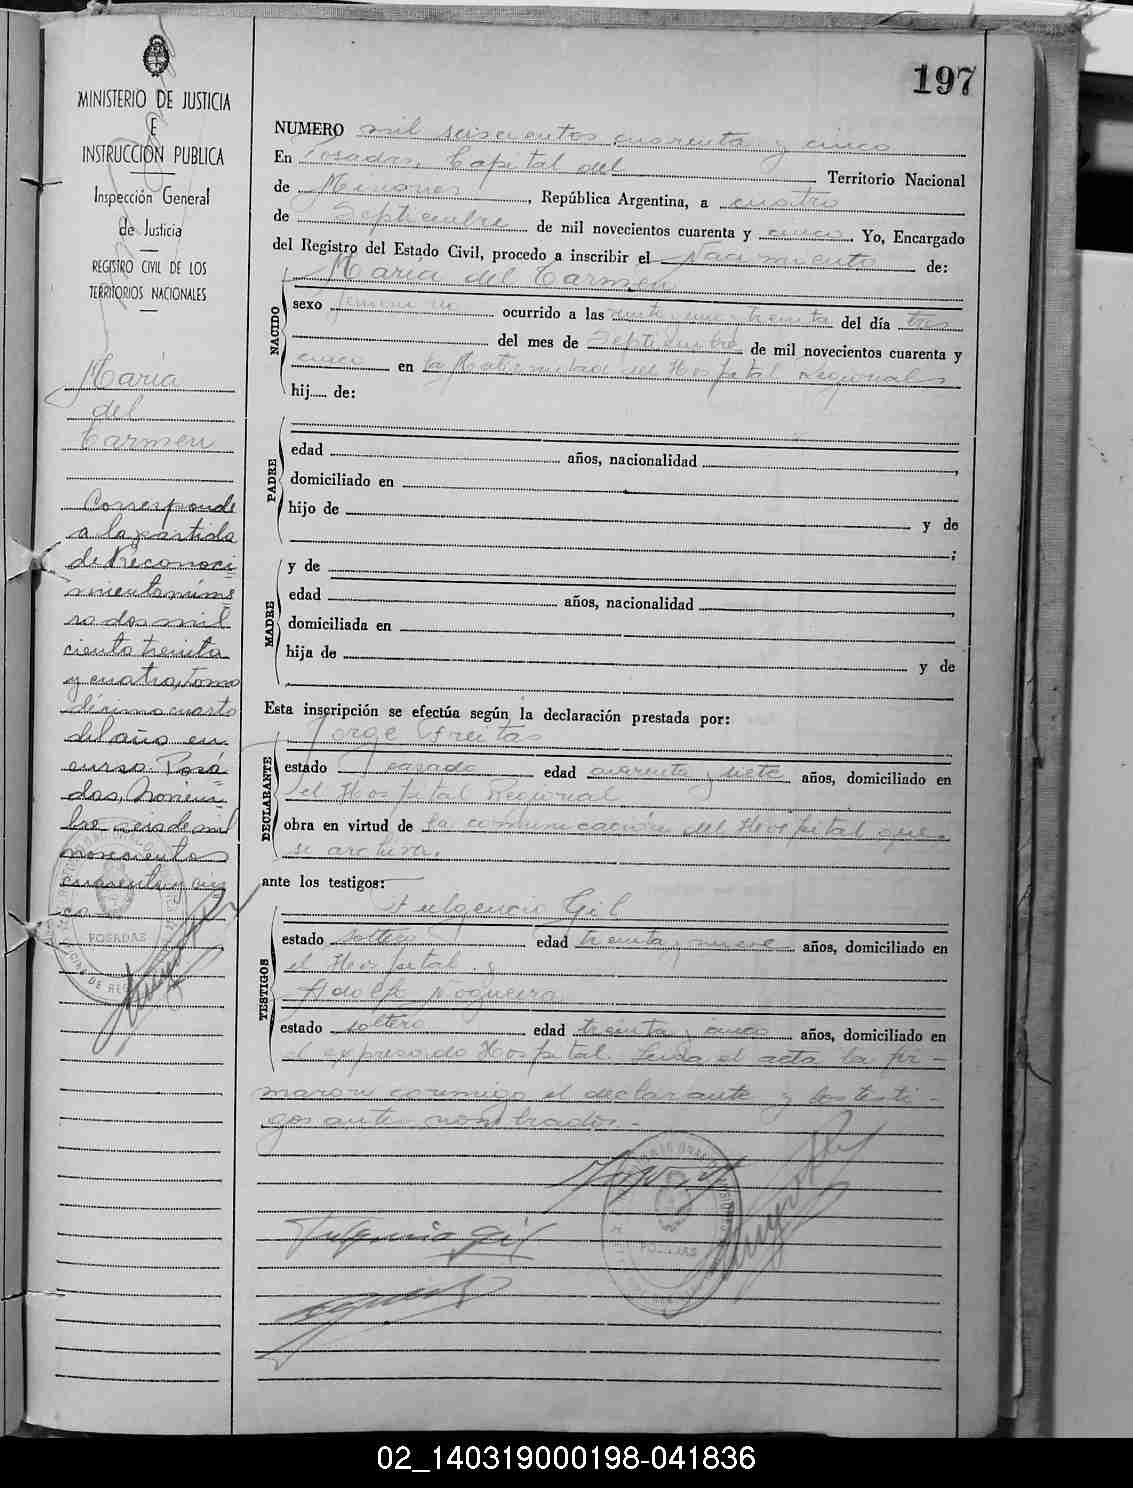 197
MINISTERIO DE JUSTICIA
E
INSTRUCCIÓN PUBLICA
Inspección General
de Justicia
REGISTRO CIVIL DE LOS
TERRITORIOS NACIONALES
María
del
Carmen
Corresponde
a la partida
de Reconoci-
miento núme-
ro dos mil
ciento treinta
y cuatro, tomo
décimo cuarto
del año en
curso. Posa-
das, Noviem-
bre seis de mil
novecientos
cuarenta y cin-
co.
POSADAS
NUMERO mil seiscientos cuarenta y cinco
En Posadas, Capital del Territorio Nacional
de Misiones, República Argentina, a cuatro
de Septiembre de mil novecientos cuarenta y cinco. Yo, Encargado
del Registro del Estado Civil, procedo a inscribir el Nacimiento de:
María del Carmen
NACIDO
sexo femenino ocurrido a las veinte y una y treinta del día tres
del mes de Septiembre de mil novecientos cuarenta y
cinco en la Maternidad del Hospital Regional
hij..... de:
PADRE
edad años, nacionalidad ,
domiciliado en
hijo de y de
;
MADRE
y de
edad años, nacionalidad ,
domiciliada en
hija de y de
Esta inscripción se efectúa según la declaración prestada por:
Jorge Freitas
DECLARANTE
estado casado edad cuarenta y siete años, domiciliado en
el Hospital Regional
obra en virtud de la comunicación del Hospital que
se archiva.
ante los testigos:
Fulgencio Gil
TESTIGOS
estado soltero edad treinta y nueve años, domiciliado en
el Hospital y
Adolfo Nogueira
estado soltero edad treinta y cinco años, domiciliado en
el expresado Hospital. Leida el acta la fir-
maron conmigo el declarante y los testi-
gos ante nombrados.-
Fulgencio Gil
POSADAS
02_140319000198-041836